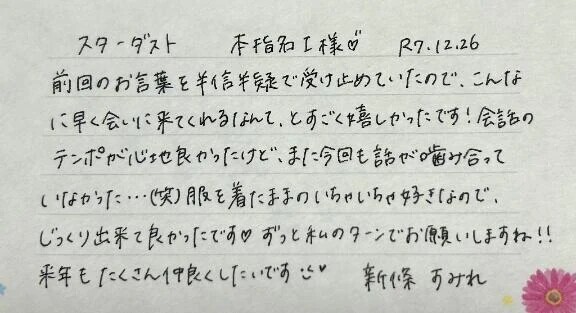 スターダスト 本指名I様♡ R7.12.26
前回のお言葉を半信半疑で受け止めていたので、こんな
に早く会いに来てくれるなんて、とすごく嬉しかったです!会話の
テンポが心地良かったけど、また今回も話が噛み合って
いなかった…(笑)服を着たままのいちゃいちゃ好きなので、
じっくり出来て良かったです♡ずっと私のターンでお願いしますね!!
来年もたくさん仲良くしたいです♡ 新條 すみれ